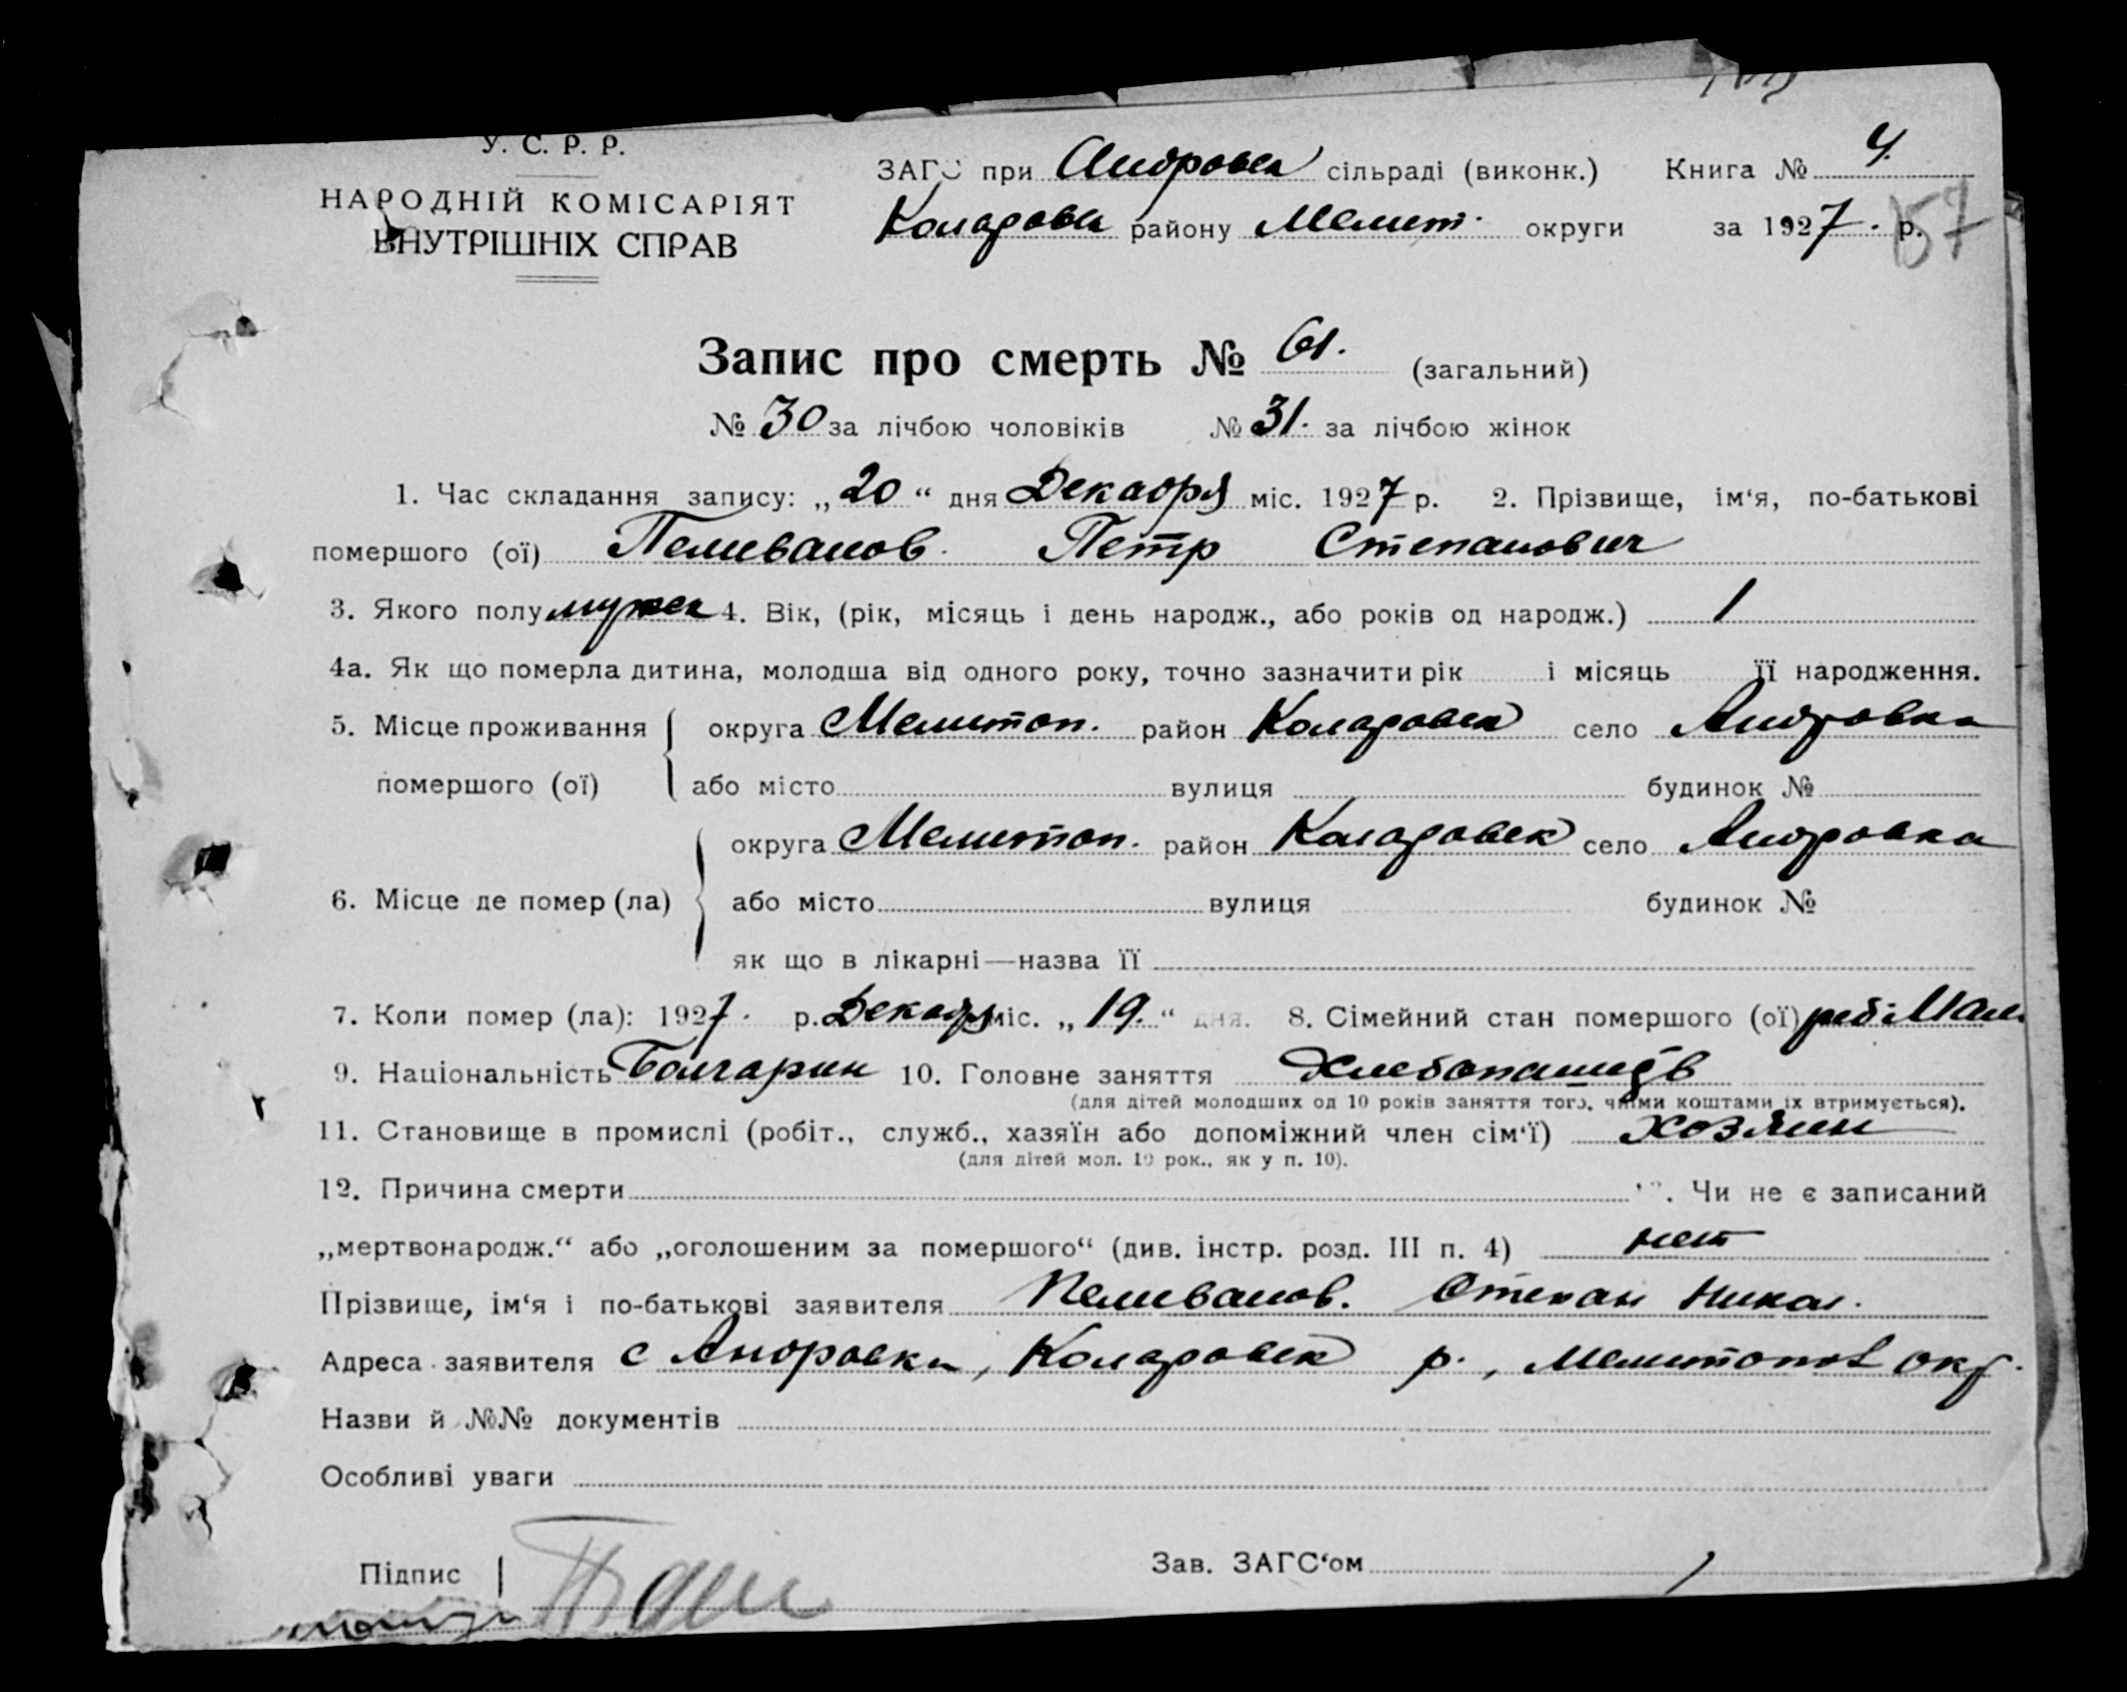 У. С. Р. Р.
НАРОДНІЙ КОМІСАРІЯТ
ВНУТРІШНІХ СПРАВ
ЗАГС при Андровск сільраді (виконк.) Книга № 4.
Коларовск району Мелит. округи за 1927. р. 157
Запис про смерть № 61. (загальний)
№ 30 за лічбою чоловіків № 31. за лічбою жінок
1. Час складання запису: „20“ дня Декабря міс. 1927 р. 2. Прізвище, ім‘я, по-батькові
помершого (ої) Пеливанов. Петр Степанович
3. Якого полу мужск 4. Вік, (рік, місяць і день народж., або років од народж.) 1
4а. Як що померла дитина, молодша від одного року, точно зазначити рік і місяць її народження.
5. Місце проживання округа Мелитоп. район Коларовск село Андровка
помершого (ої) або місто вулиця будинок №
округа Мелитоп. район Коларовск село Андровка
6. Місце де помер (ла) або місто вулиця будинок №
як що в лікарні—назва її
7. Коли помер (ла): 1927. р. Декабря міс. „19.“ дня. 8. Сімейний стан помершого (ої) реб.
9. Національність Болгарин 10. Головне заняття Хлебопашцев
(для дітей молодших од 10 років заняття того, чиїми коштами їх втримується).
11. Становище в промислі (робіт., служб., хазяїн або допоміжний член сім‘ї) хозяин
(для дітей мол. 10 рок., як у п. 10).
12. Причина смерти . Чи не є записаний
„мертвонародж.“ або „оголошеним за помершого“ (див. інстр. розд. III п. 4) нет
Прізвище, ім‘я і по-батькові заявителя Пеливанов. Степан Никол.
Адреса заявителя с Андровка, Коларовск р., Мелитопол окр.
Назви й №№ документів
Особливі уваги
Підпис Зав. ЗАГС‘ом